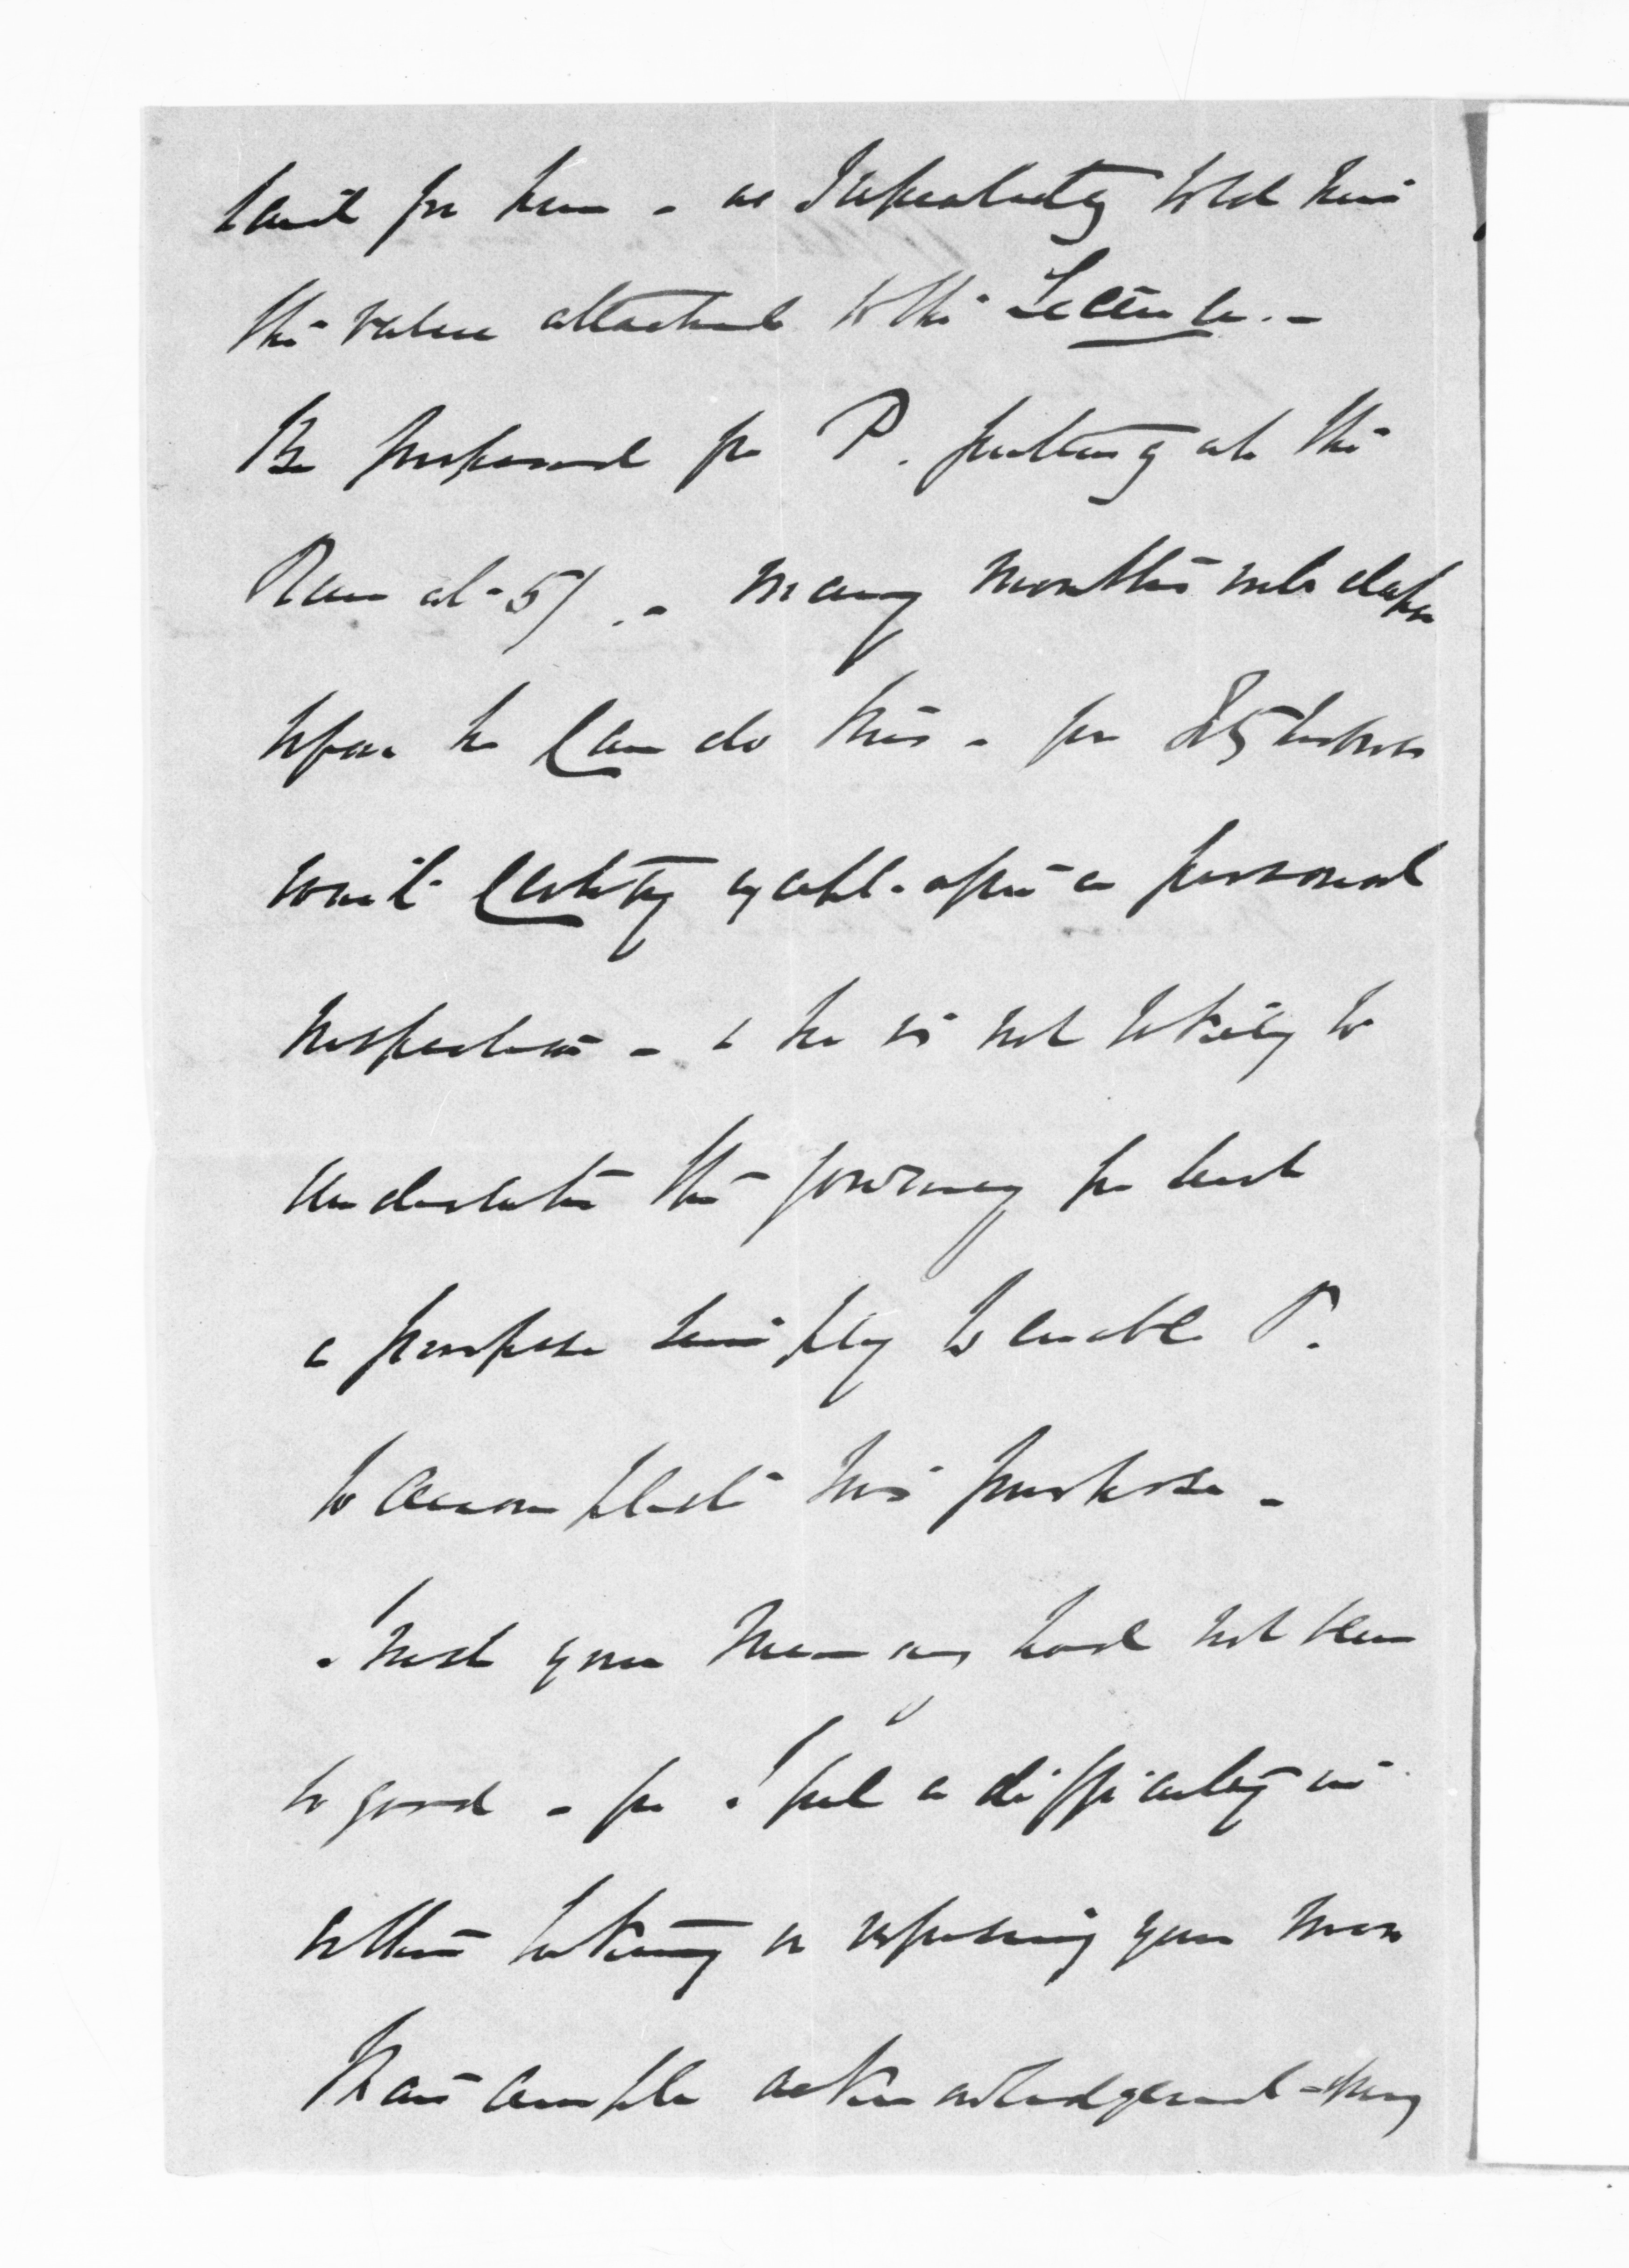 for him - as I repeatedly told him
the value attached to the
Be prepared for P. putting at the
Ram at 5/ . - many months must elapse
before he can do this - for
wont certify again after a personal
inspection - & he is not likely to
undertake the journey for such
a purpose simply to enable P.
to accomplish his purpose -
I wish your memory had not been
so good - for I feel a difficulty in
either taking or refusing your more
than ample acknowledgement